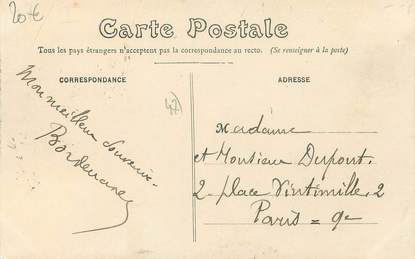 20€
Carte Postale
Tous les pays étrangers n'acceptent pas la correspondance au recto. (Se renseigner à la poste)
CORRESPONDANCE
ADRESSE
Mon meilleur Souvenir
47)
Madame
et Monsieur Dupont.
2 place Vintimille, 2
Paris = 9e